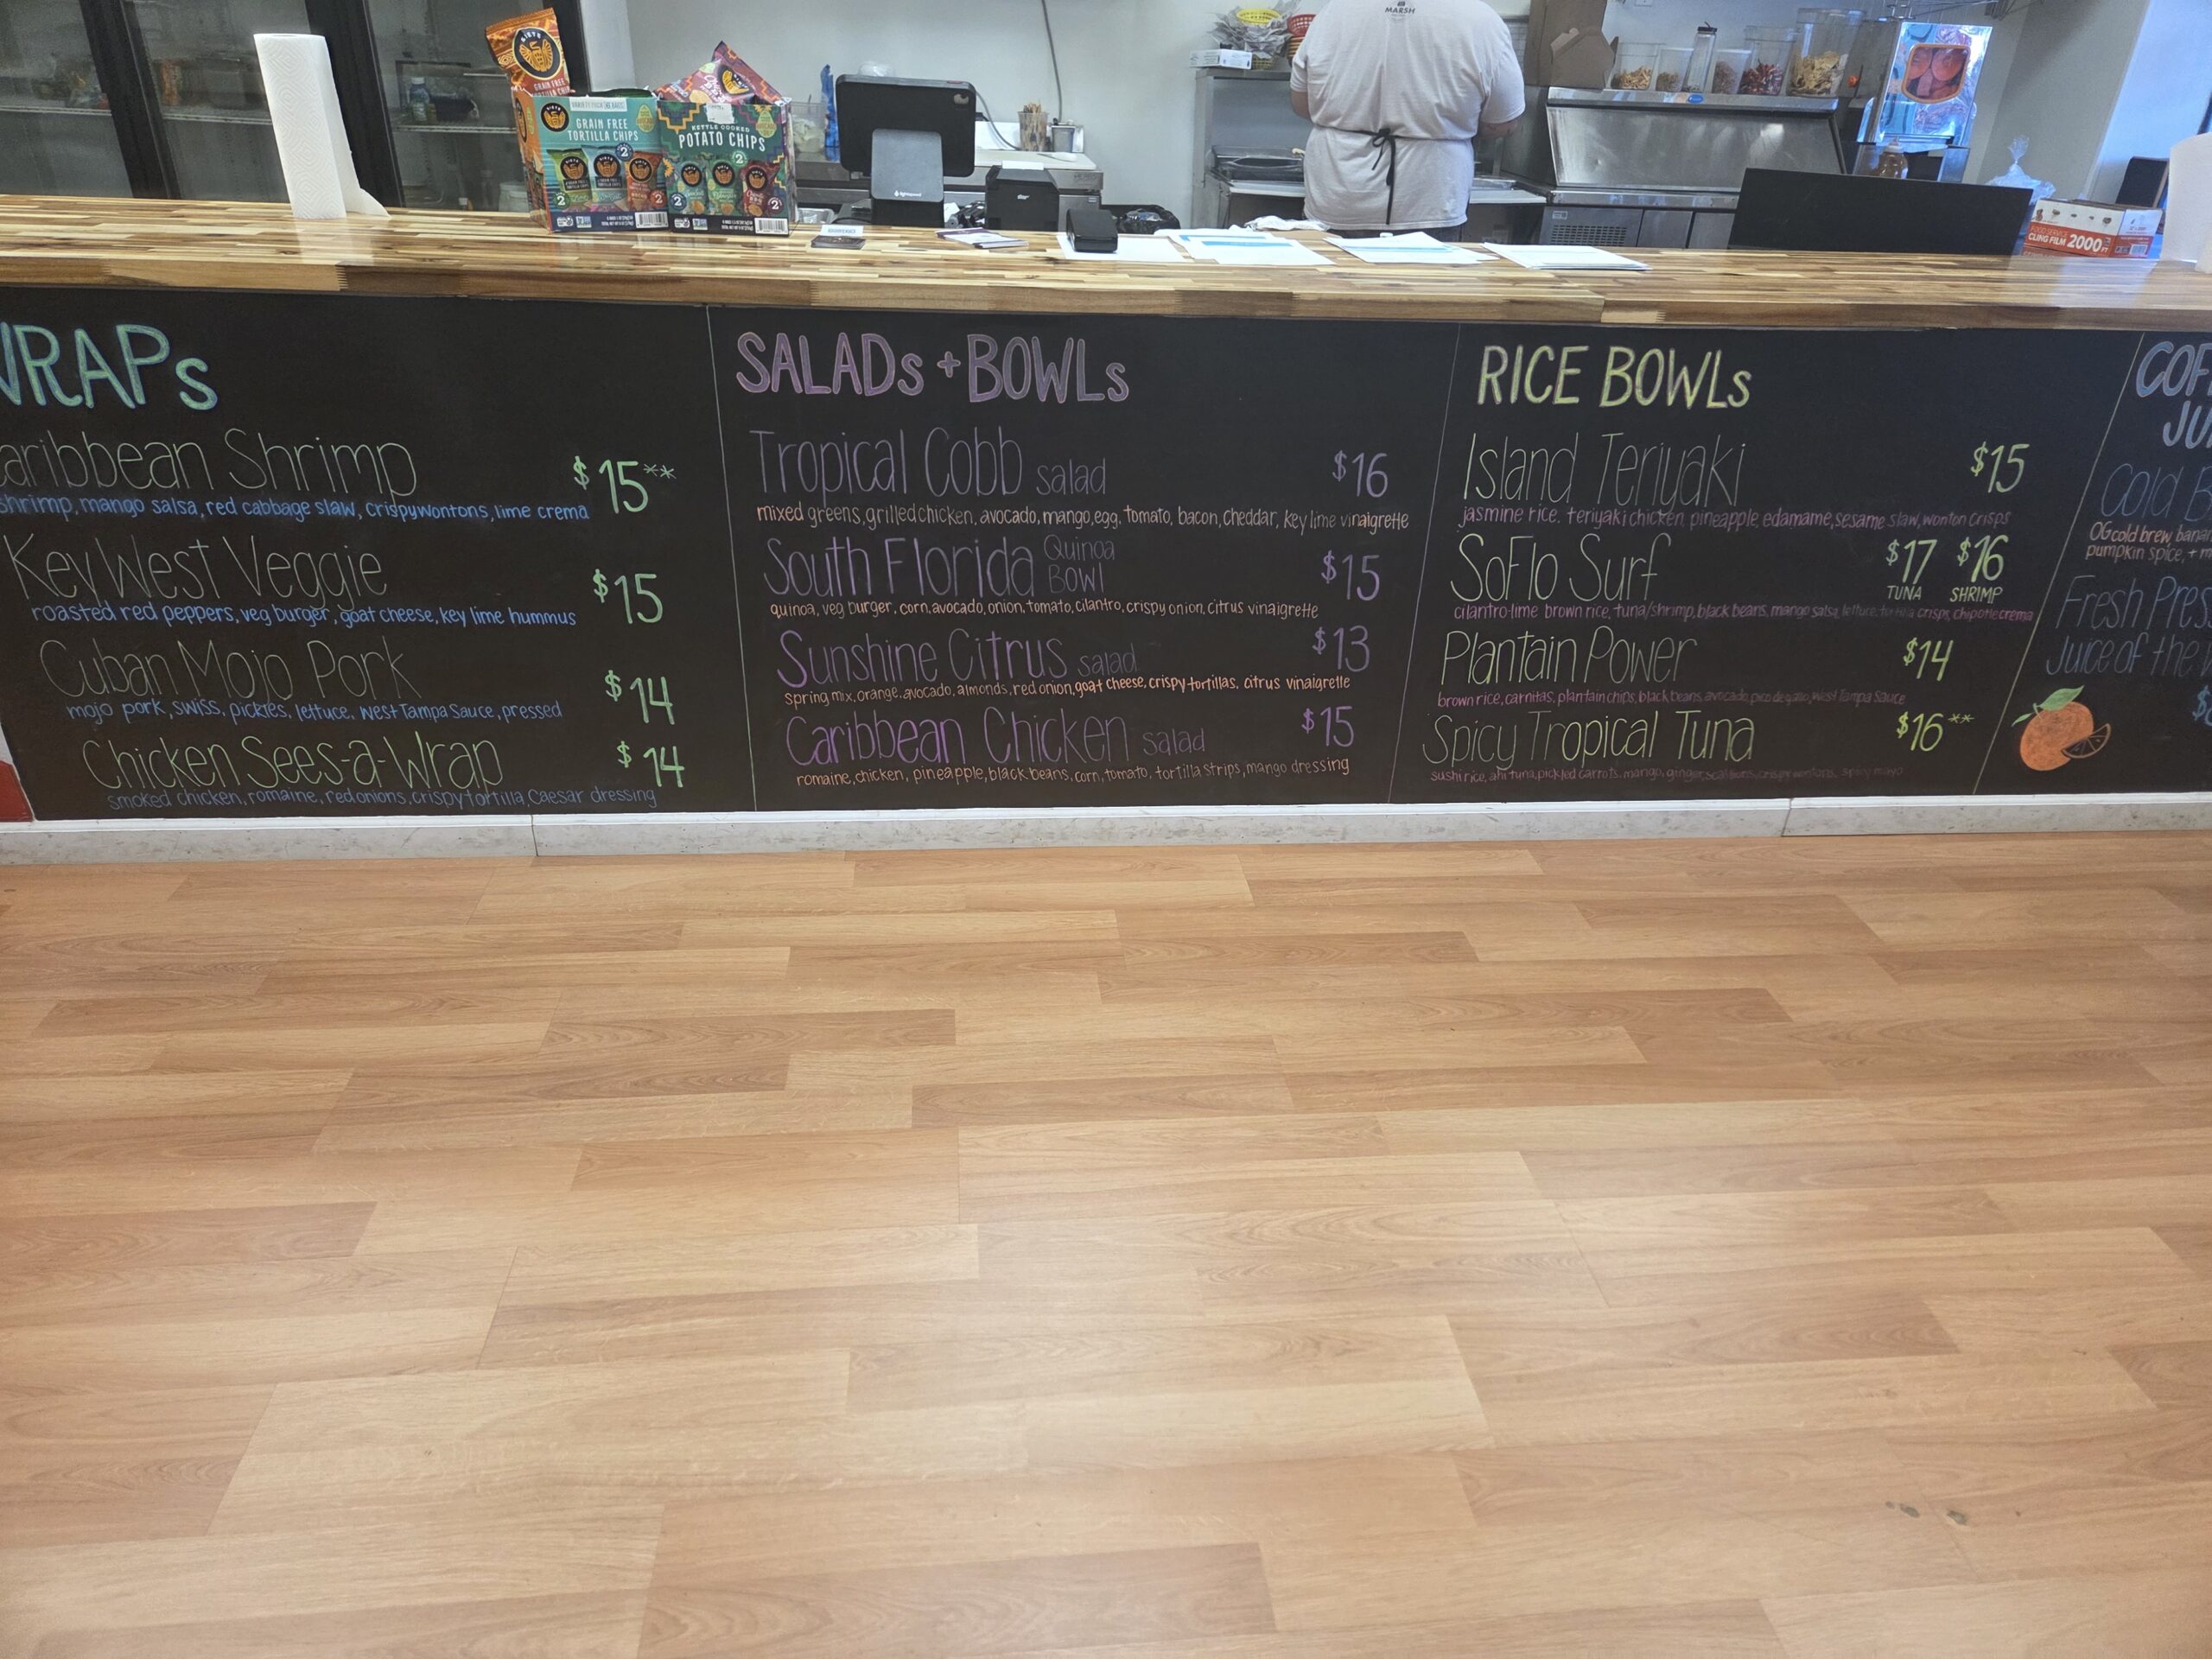 MARSH
SIETE
GRAIN FREE
TORTILLA CHIPS
GRAIN FREE
TORTILLA CHIPS
KETTLE COOKED
POTATO CHIPS
lightspeed
FOOD SERVICE
CLING FILM 2000
WRAPs
Caribbean Shrimp $15**
shrimp, mango salsa, red cabbage slaw, crispy wontons, lime crema
Key West Veggie $15
roasted red peppers, veg burger, goat cheese, key lime hummus
Cuban Mojo Pork $14
mojo pork, swiss, pickles, lettuce, West Tampa Sauce, pressed
Chicken Sees-a-Wrap $14
smoked chicken, romaine, red onions, crispy tortilla, Caesar dressing
SALADs + BOWLs
Tropical Cobb salad $16
mixed greens, grilled chicken, avocado, mango, egg, tomato, bacon, cheddar, key lime vinaigrette
South Florida Quinoa BOWl $15
quinoa, veg burger, corn, avocado, onion, tomato, cilantro, crispy onion, citrus vinaigrette
Sunshine Citrus salad $13
spring mix, orange, avocado, almonds, red onion, goat cheese, crispy tortillas, citrus vinaigrette
Caribbean Chicken salad $15
romaine, chicken, pineapple, black beans, corn, tomato, tortilla strips, mango dressing
RICE BOWLs
Island Teriyaki $15
jasmine rice, teriyaki chicken, pineapple, edamame, sesame slaw, wonton crisps
SoFlo Surf $17 TUNA $16 SHRIMP
cilantro-lime brown rice, tuna/shrimp, black beans, mango salsa, lettuce, tortilla crisps, chipotle crema
Plantain Power $14
brown rice, carnitas, plantain chips, black beans, avocado, pico de gallo, West Tampa Sauce
Spicy Tropical Tuna $16**
sushi rice, ahi tuna, pickled carrots, mango, ginger, scallions, crispy wontons, spicy mayo
COF
JU
Cold B
OG cold brew banan
pumpkin spice, + m
Fresh Press
Juice of the